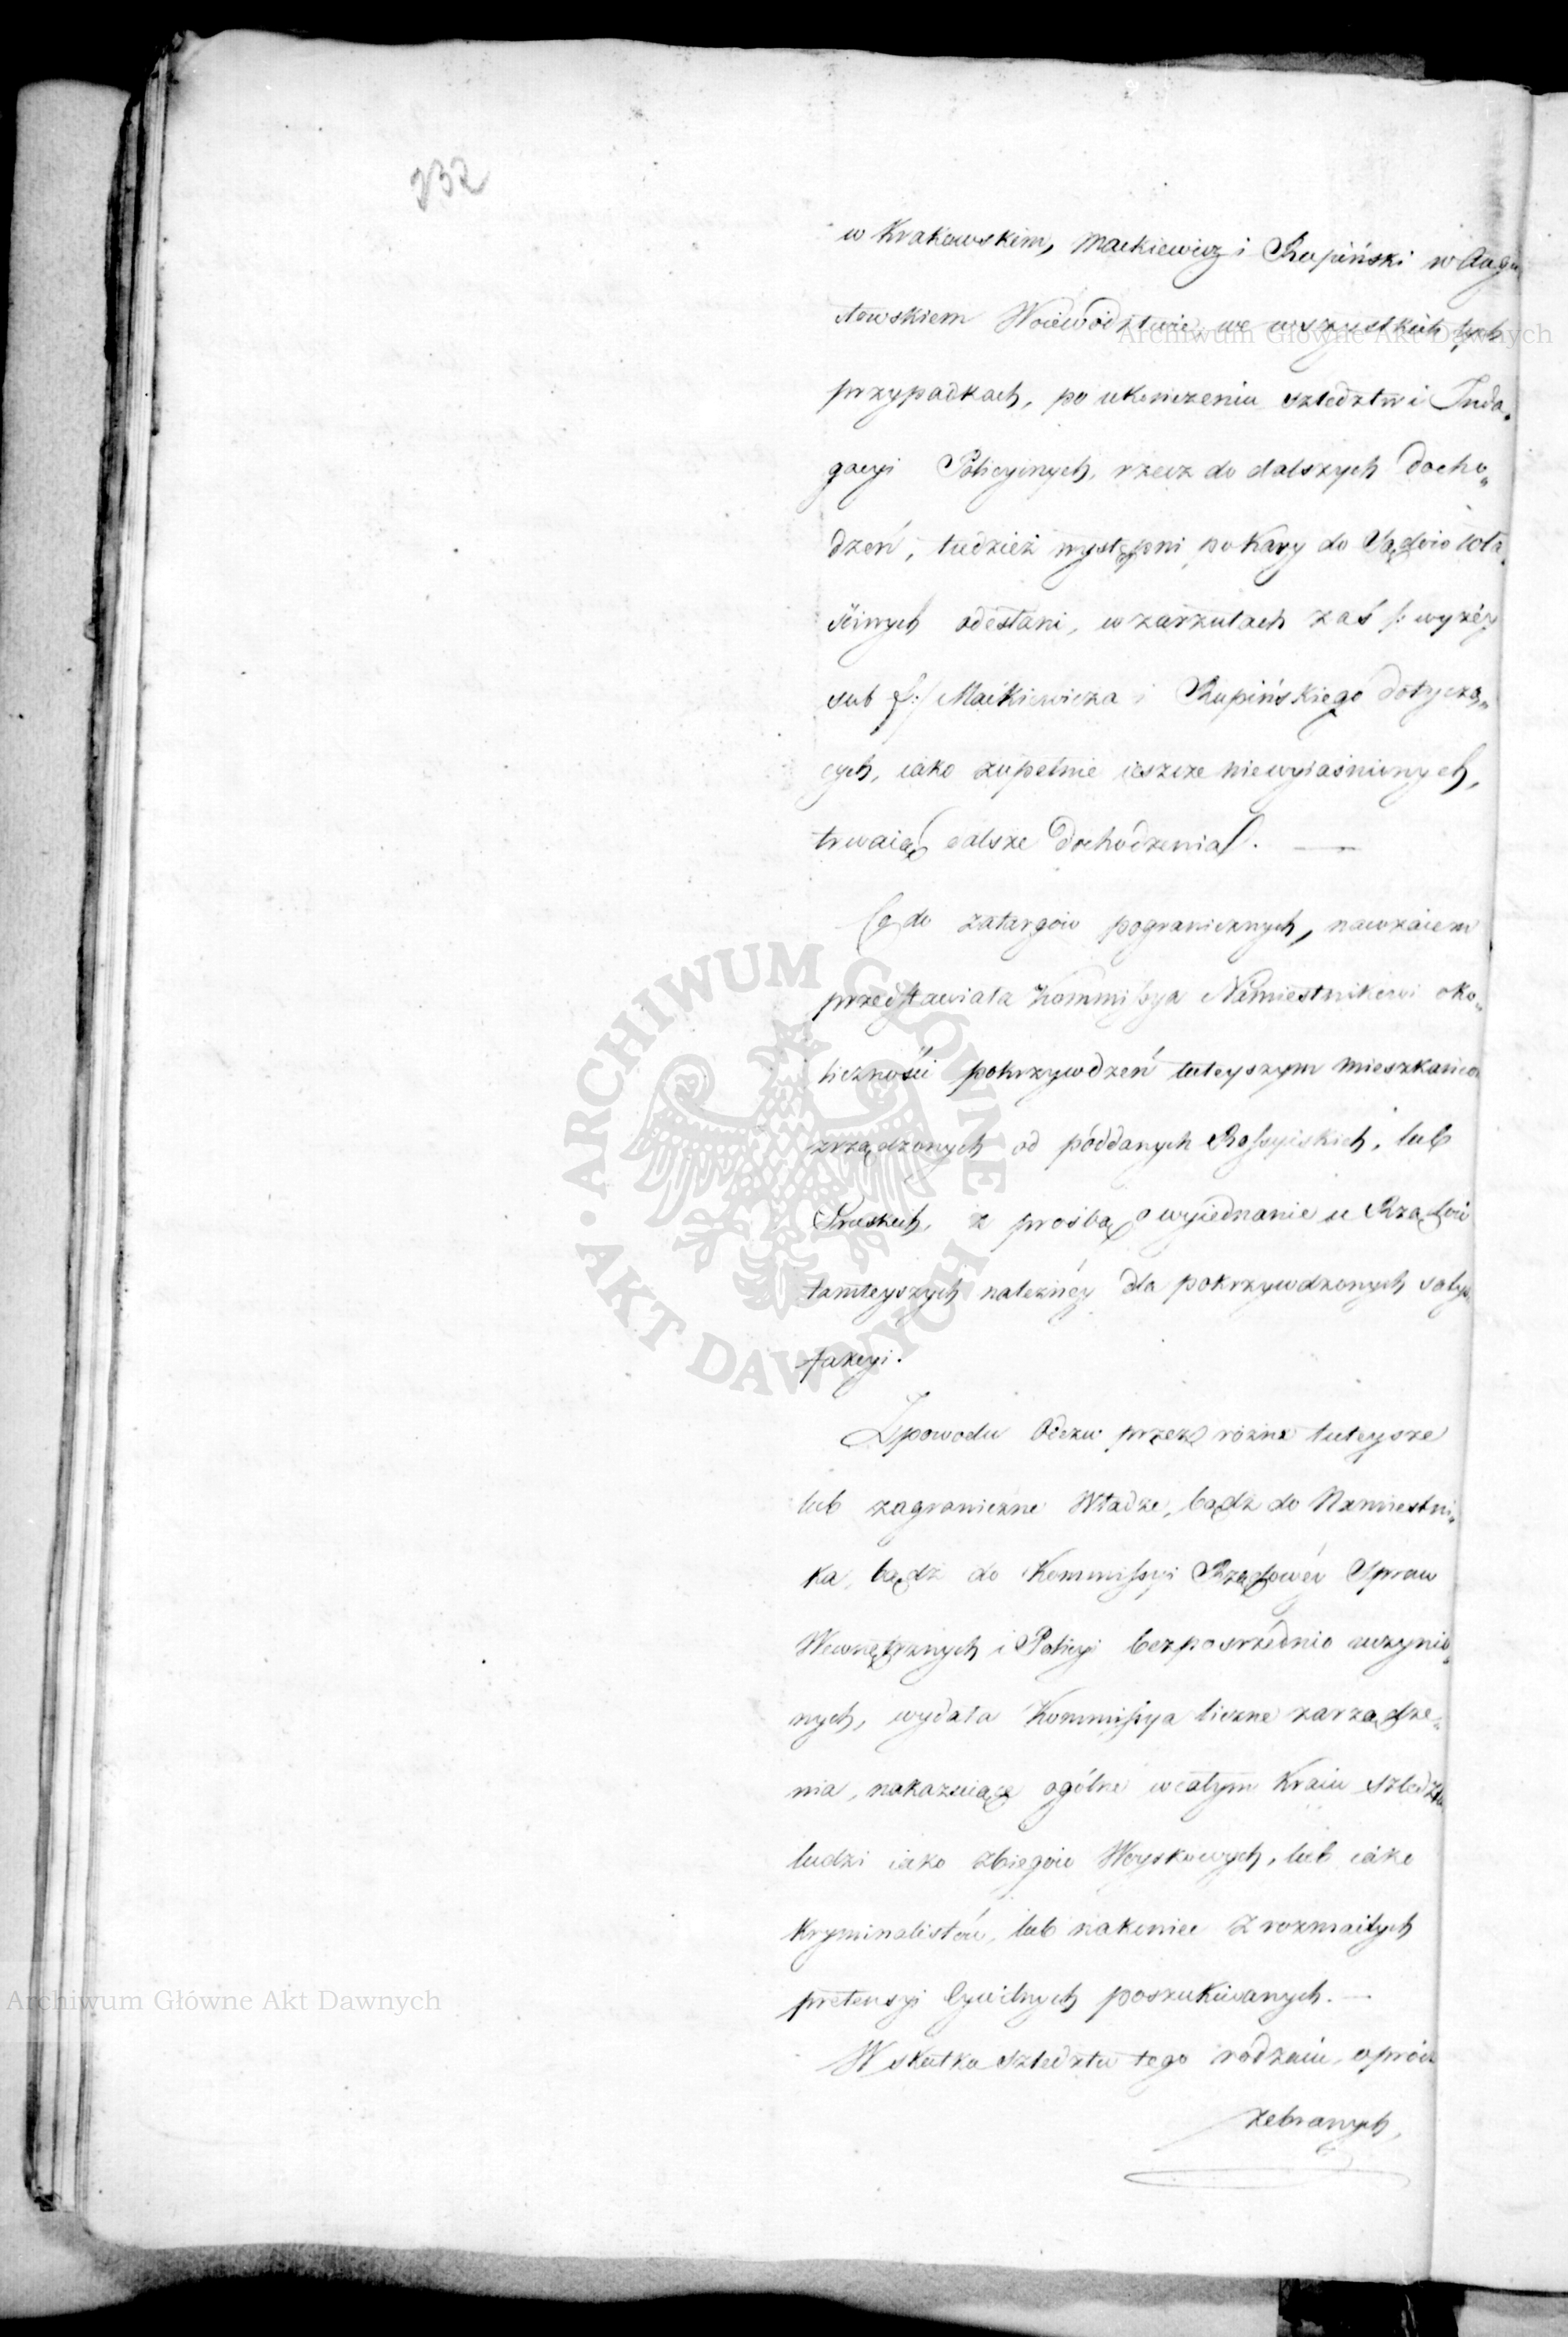 232
w Krakowskim, Maćkiewicz i Rupiński w Augu
stowskiem Woiewództwie, we wszystkich tych
przypadkach, po ukończeniu szledztw i Inda„
gacyi Policyinych, rzecz do dalszych docho„
dzeń, tudzież występni po kary do Sądów wła„
ściwych odesłani, w zarzutach zaś /: wyżéy
sub f:/ Maćkiewicza i Rupińskiego dotycza„
cych, iako zupełnie ieszcze niewyiaśnionych,
trwaią dalsze dochodzenia. —
Co do zatargów pogranicznych, nawzaiem
przedstawiała Kommissya Namiestnikowi oko„
liczności pokrzywdzeń tuteyszym mieszkańcom
zrządzonych od poddanych Rossyiskich, lub
Pruskich, z prośbą o wyiednanie u Rządów
tamteyszych należnéy dla pokrzywdzonych satys„
fakcyi.
Z powodu Odezw przez różne tuteysze
lub zagraniczne Władze, bądź do Namiestni„
ka, bądź do Kommissyi Rządowéy Spraw
Wewnętrznych i Policyi bezpośrédnio uczynio„
nych, wydała Kommissya liczne zarządze„
nia, nakazuiące ogólne w całym Kraiu szledztwa
ludzi iako zbiegów Woyskowych, lub iako
Kryminalistów, lub nakoniec z rozmaitych
pretensyi Cywilnych poszukiwanych. —
W skutku szledztw tego rodzaiu, oprócz
zebranych,
Archiwum Główne Akt Dawnych
ARCHIWUM GŁÓWNE • AKT DAWNYCH
Archiwum Główne Akt Dawnych